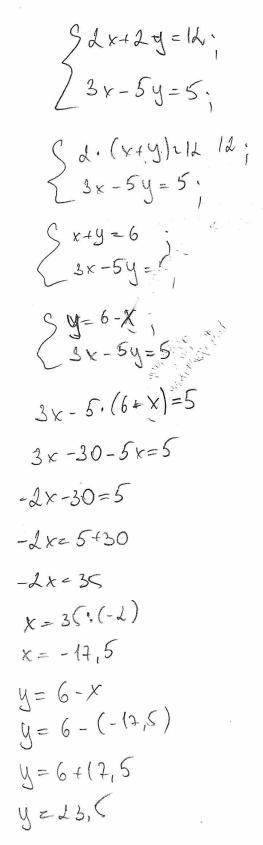 {2x+2y=12;
{3x-5y=5;
{2·(x+y)=12 |2;
{3x-5y=5;
{x+y=6;
{3x-5y=5;
{y=6-x;
{3x-5y=5
3x-5·(6-x)=5
3x-30-5x=5
-2x-30=5
-2x=5+30
-2x=35
x=35:(-2)
x=-17,5
y=6-x
y=6-(-17,5)
y=6+17,5
y=23,5